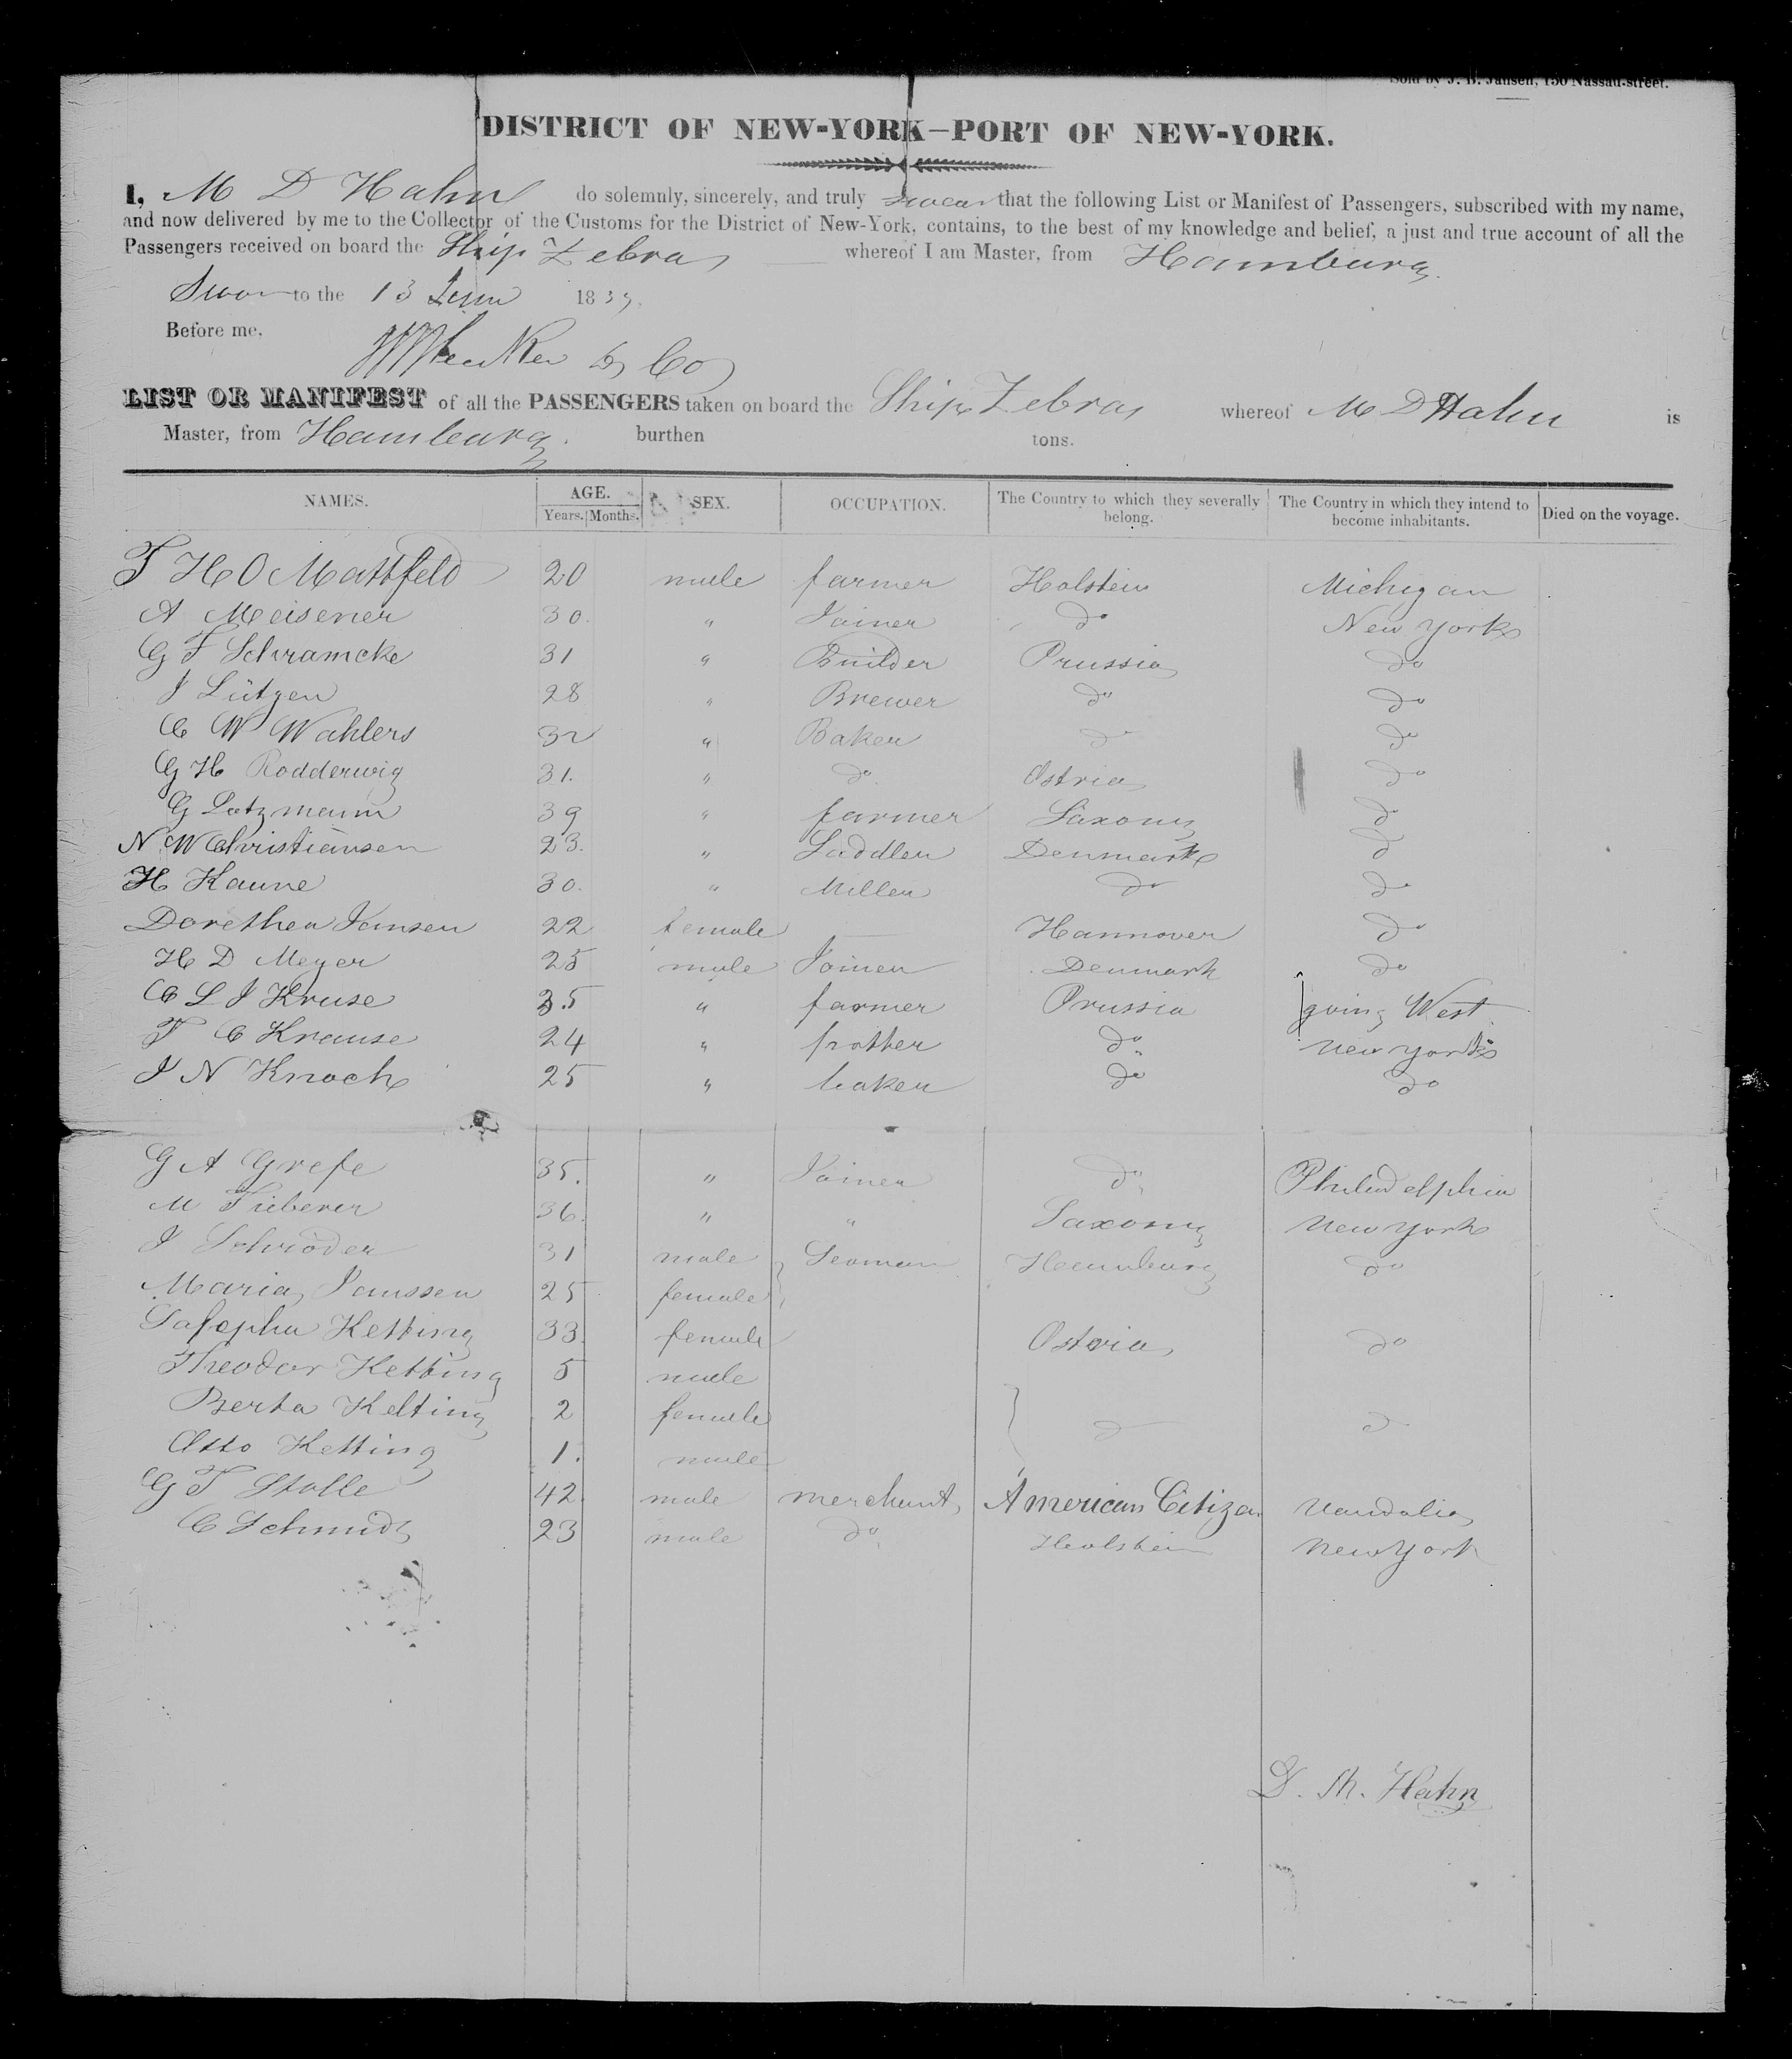 Sold by J. B. Jansen, 150 Nassau-street.
DISTRICT OF NEW-YORK—PORT OF NEW-YORK.
I, M D Hahn do solemnly, sincerely, and truly swear that the following List or Manifest of Passengers, subscribed with my name,
and now delivered by me to the Collector of the Customs for the District of New-York, contains, to the best of my knowledge and belief, a just and true account of all the
Passengers received on board the Ship Zebra whereof I am Master, from Hamburg.
Sworn to the 13 June 1839.
Before me,
Co
LIST OR MANIFEST of all the PASSENGERS taken on board the Ship Zebra whereof M D Hahn is
Master, from Hamburg. burthen tons.
NAMES. AGE. Years. Months. SEX. OCCUPATION. The Country to which they severally belong. The Country in which they intend to become inhabitants. Died on the voyage.
T H O Mattfeld 20 male farmer Holstein Michigan
A Meisener 30. " Joiner do New York
G F Schramcke 31 " Builder Prussia do
J Lützen 28 " Brewer do do
C W Wahlers 32 " Baker do do
G H Rodderwig 31. " do Ostria do
G Lotzmann 39 " farmer Saxony do
N W Christiansen 23. " Saddler Denmark do
H Kaune 30. " Miller do do
Dorethea Jansen 22 female — Hannover do
H D Meyer 25 male Joiner Denmark do
C L J Kruse 35 " farmer Prussia going West
T C Krause 24 " do New York
J N Knoch 25 " baker do do
G A Grefe 35. " Joiner do Philadelphia
M 36. " " Saxony New York
J Schröder 31 male Seaman Hamburg do
Maria Janssen 25 female
Ketting 33. female Ostria do
Theodor Ketting 5 male
Berta Ketting 2 female do do
Otto Ketting 1. male
G T Stolle 42 male merchant American Citizen Vandalia
C Schmidt 23 male do Holstein New York
D. M. Hahn